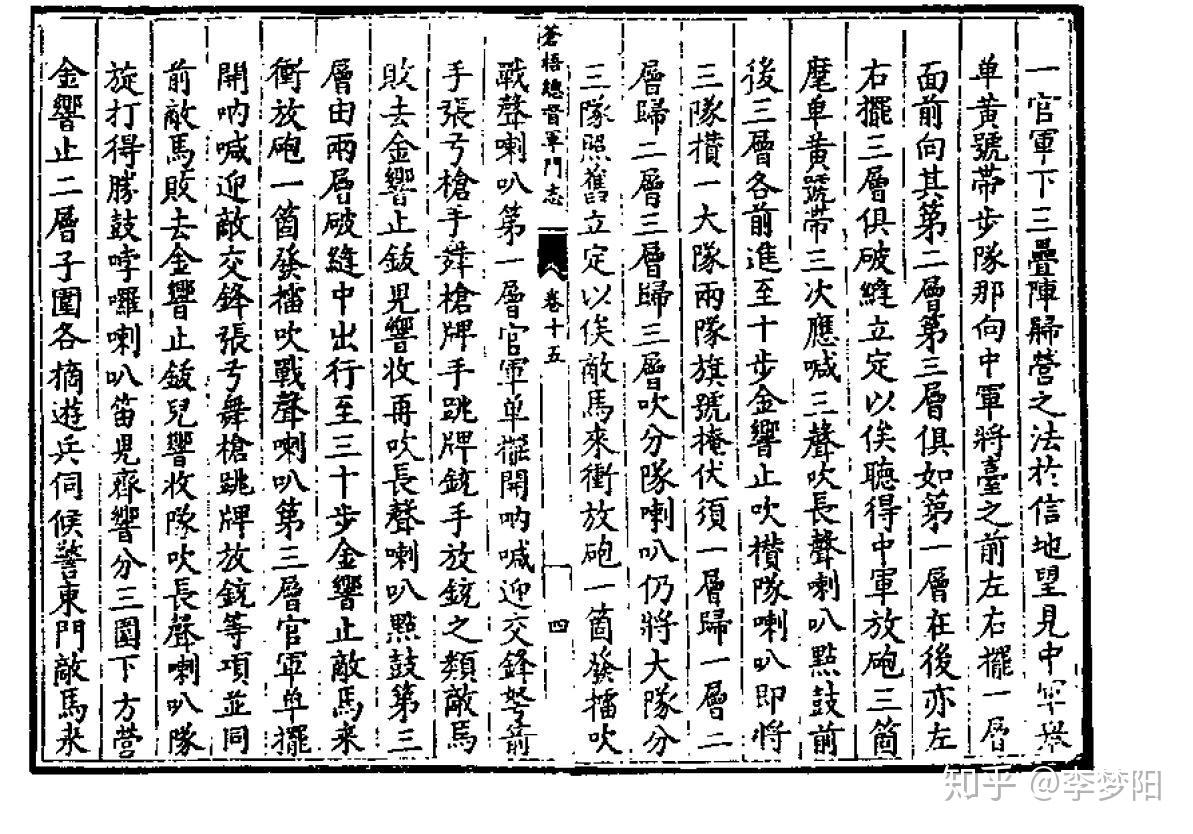 一官軍下三疊陣歸營之法於信地望見中軍舉
单黄號帶步隊那向中軍將臺之前左右擺一層
面前向其第二層第三層俱如第一層在後亦左
右擺三層俱破縫立定以俟聽得中軍放砲三箇
麾单黄號帶三次應喊三聲吹長聲喇叭點鼓前
後三層各前進至十步金響止吹攅隊喇叭即將
三隊攅一大隊兩隊旗號掩伏須一層歸一層二
層歸二層三層歸三層吹分隊喇叭仍將大隊分
三隊照舊立定以俟敵馬來衝放砲一箇發擂吹
蒼梧總督軍門志 卷十五 四
戰聲喇叭第一層官軍单擺開吶喊迎交鋒弩箭
手張弓槍手舞槍牌手跳牌銃手放銃之類敵馬
敗去金響止鈸児響收再吹長聲喇叭點鼓第三
層由兩層破縫中出行至三十步金響止敵馬来
衝放砲一箇發擂吹戰聲喇叭第三層官軍单擺
開吶喊迎敵交鋒張弓舞槍跳牌放銃等項並同
前敵馬敗去金響止鈸兒響收隊吹長聲喇叭隊
旋打得勝鼓哱囉喇叭笛児齊響分三圍下方營
金響止二層子圍各摘遊兵伺候警東門敵馬来
知乎 @李梦阳